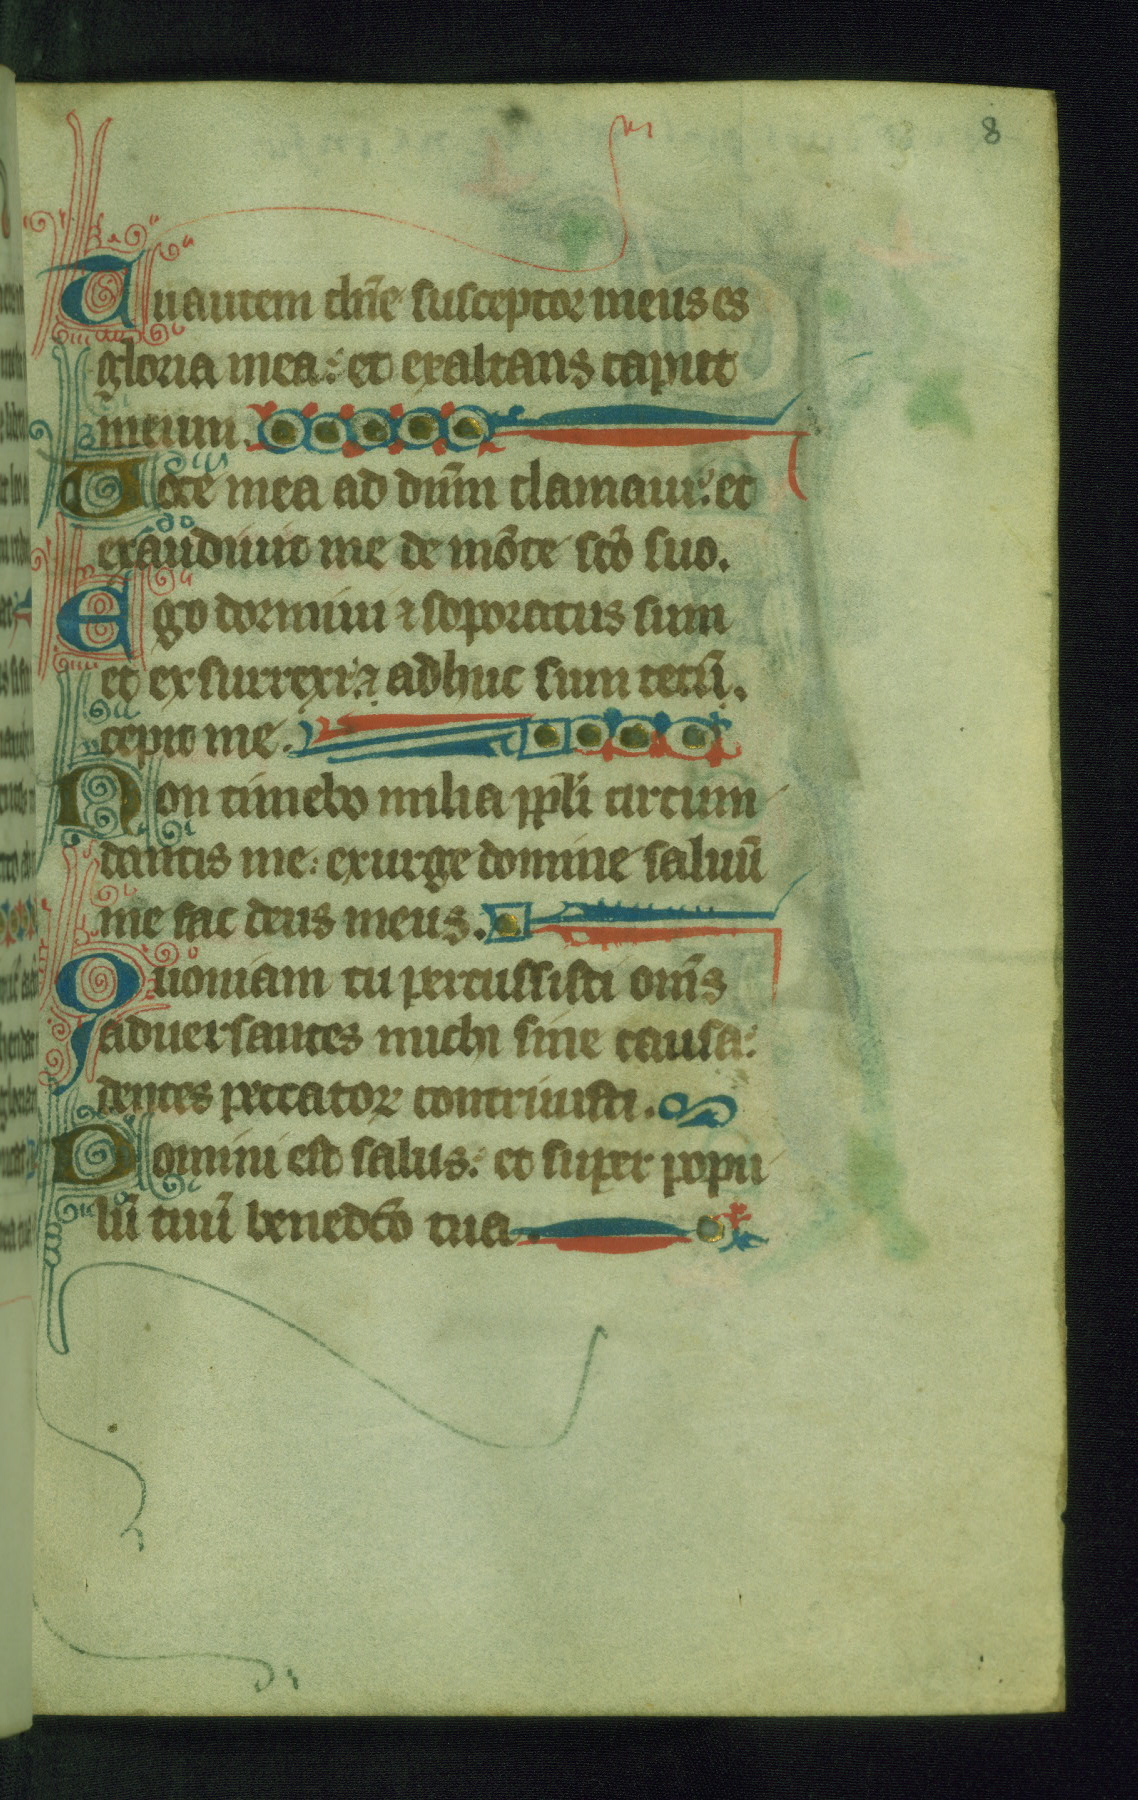 8
Tu autem dn̄e susceptor meus es
gloria mea: et exaltans caput
meum.
Uoce mea ad dūm clamaui: et
exaudiuit me de mōte scō suo.
Ego dormiui ⁊ soporatus sum
et exsurrexi: ⁊ adhuc sum tecū.
cepit me.
Non timebo milia ppl̄i circum
dantis me: exurge domine saluū
me fac deus meus.
Quoniam tu percussisti om̄s
aduersantes michi sine causa:
dentes peccatoꝝ contriuisti.
Domini est salus: et super popu
lū tuū benedc̄o tua.